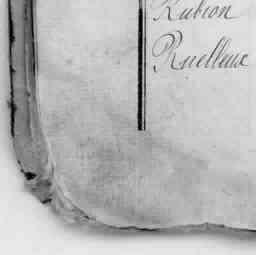 Rubion
Ruelleux